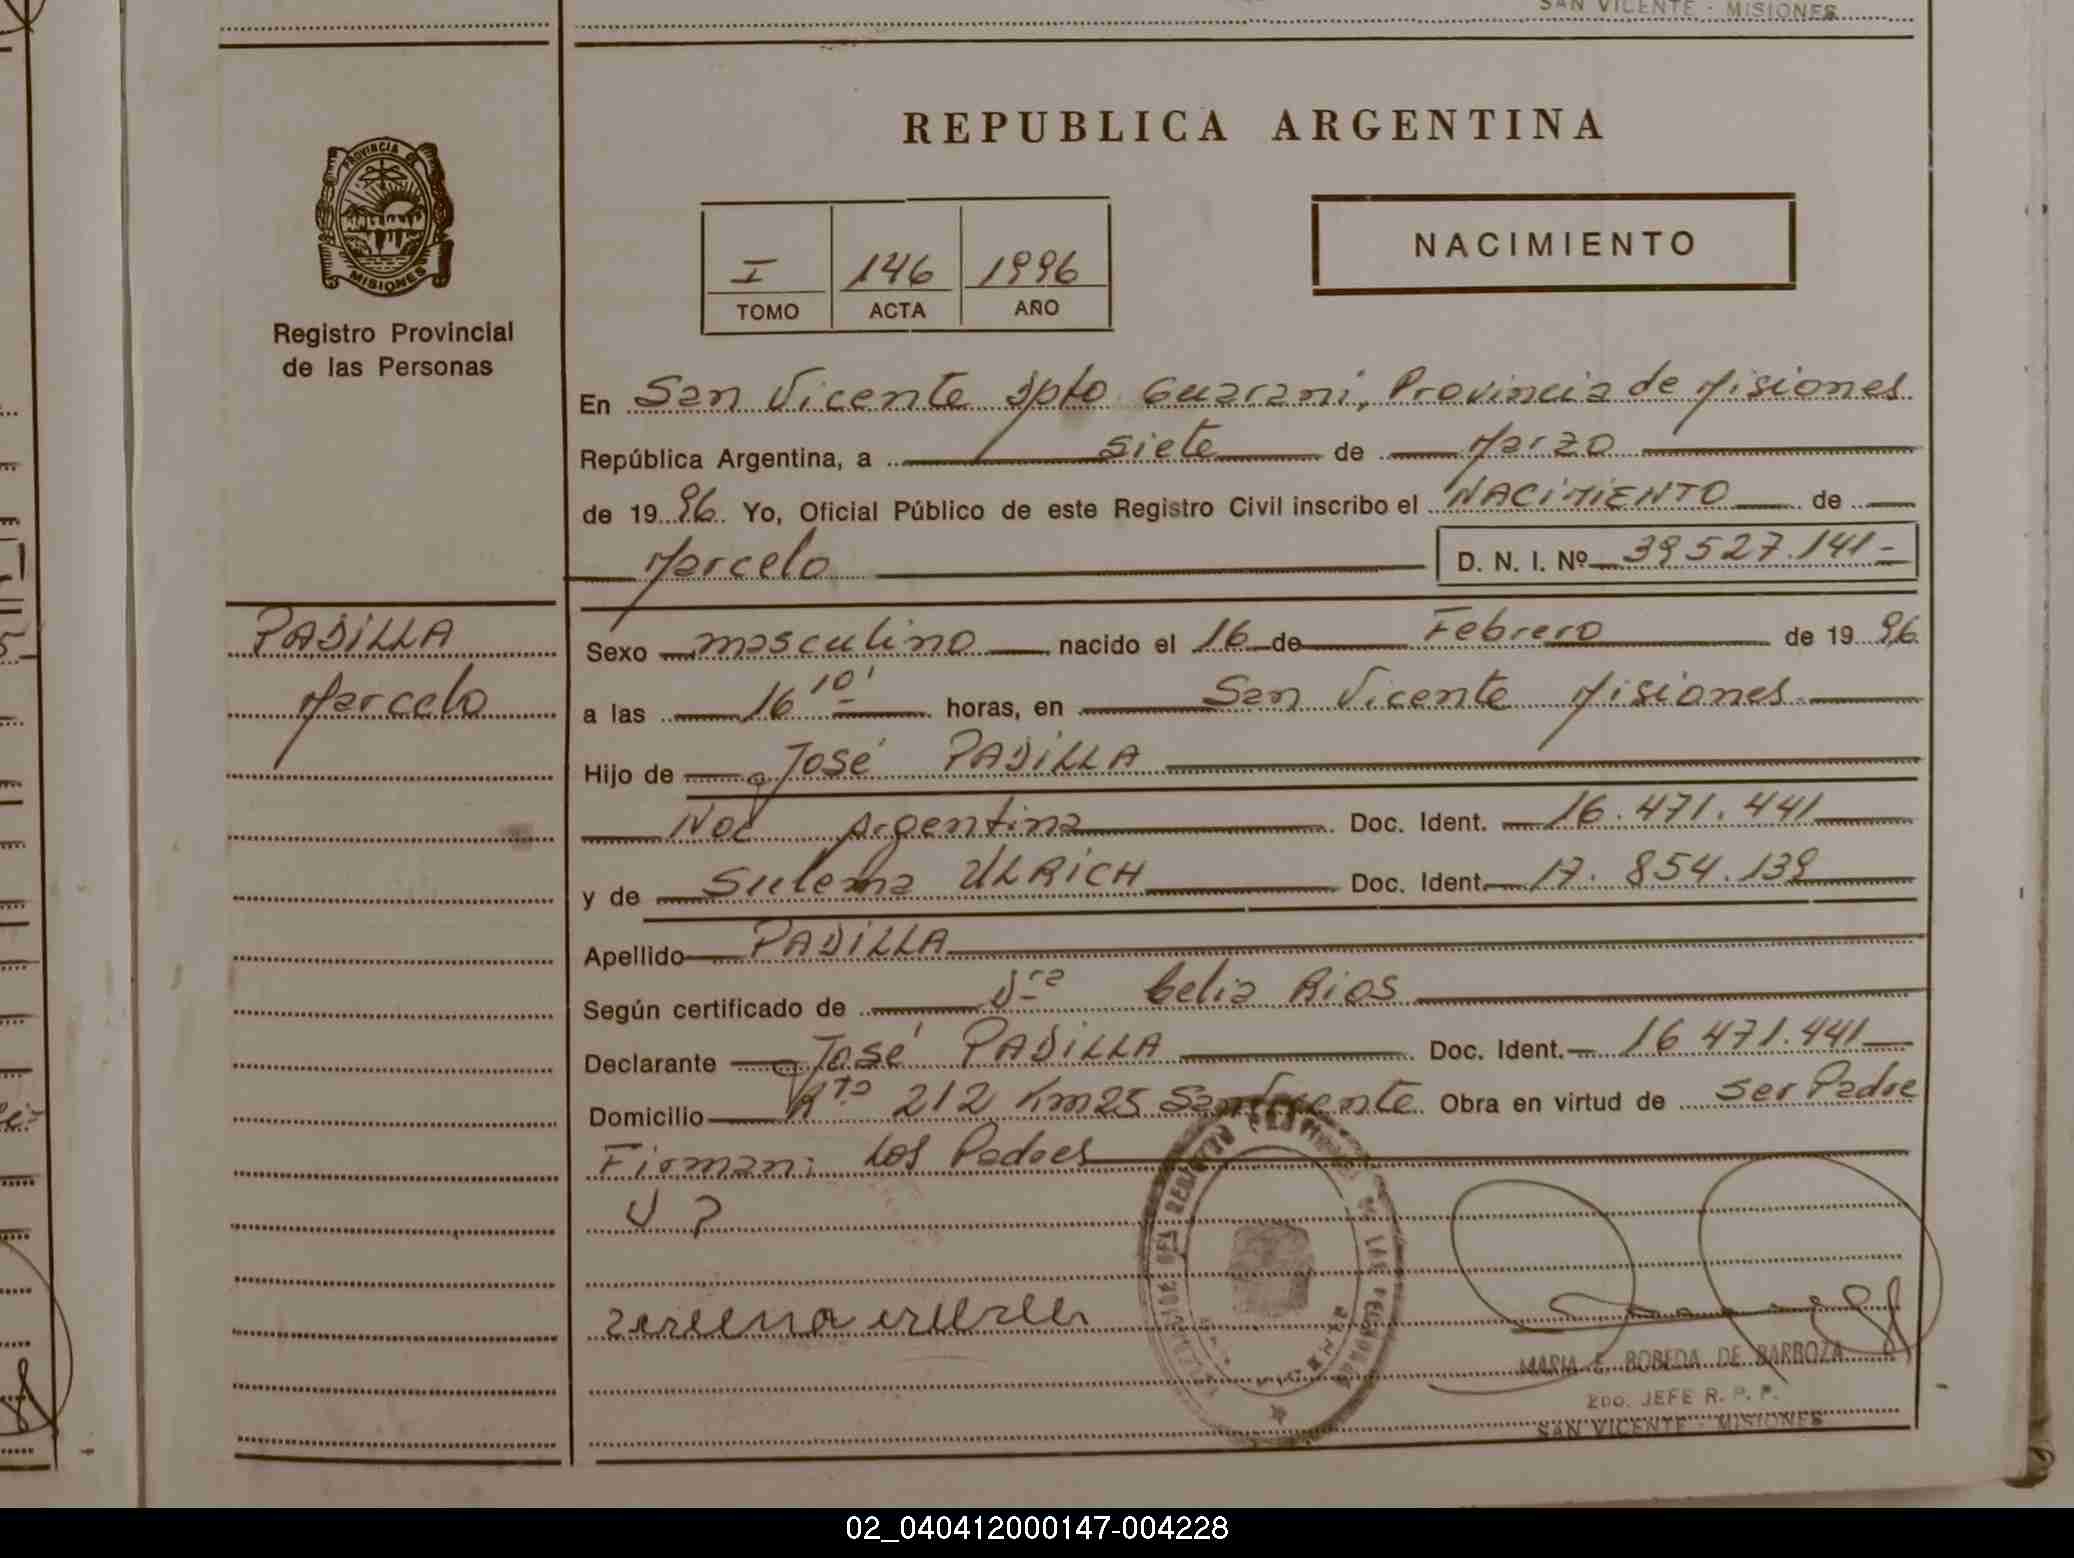 SAN VICENTE - MISIONES
REPUBLICA ARGENTINA
PROVINCIA DE
MISIONES
Registro Provincial
de las Personas
I 146 1996
TOMO ACTA AÑO
NACIMIENTO
En San Vicente Dpto Guaraní, Provincia de Misiones
República Argentina, a siete de Marzo
de 1996 Yo, Oficial Público de este Registro Civil inscribo el NACIMIENTO de
Marcelo D. N. I. Nº 39527.141-
PADILLA
Marcelo
Sexo masculino nacido el 16 de Febrero de 1996
a las 16 10' horas, en San Vicente Misiones
Hijo de José PADILLA
Nac Argentina Doc. Ident. 16.471.441
y de Sulema ULRICH Doc. Ident. 17.854.139
Apellido PADILLA
Según certificado de Dra Celia Rios
Declarante José PADILLA Doc. Ident. 16 471.441
Domicilio Rta 212 Km25 San Vicente Obra en virtud de ser Padre
Firman: Los Padres
MARIA E. BOBEDA DE BARBOZA
2DO. JEFE R. P. P.
SAN VICENTE - MISIONES
02_040412000147-004228